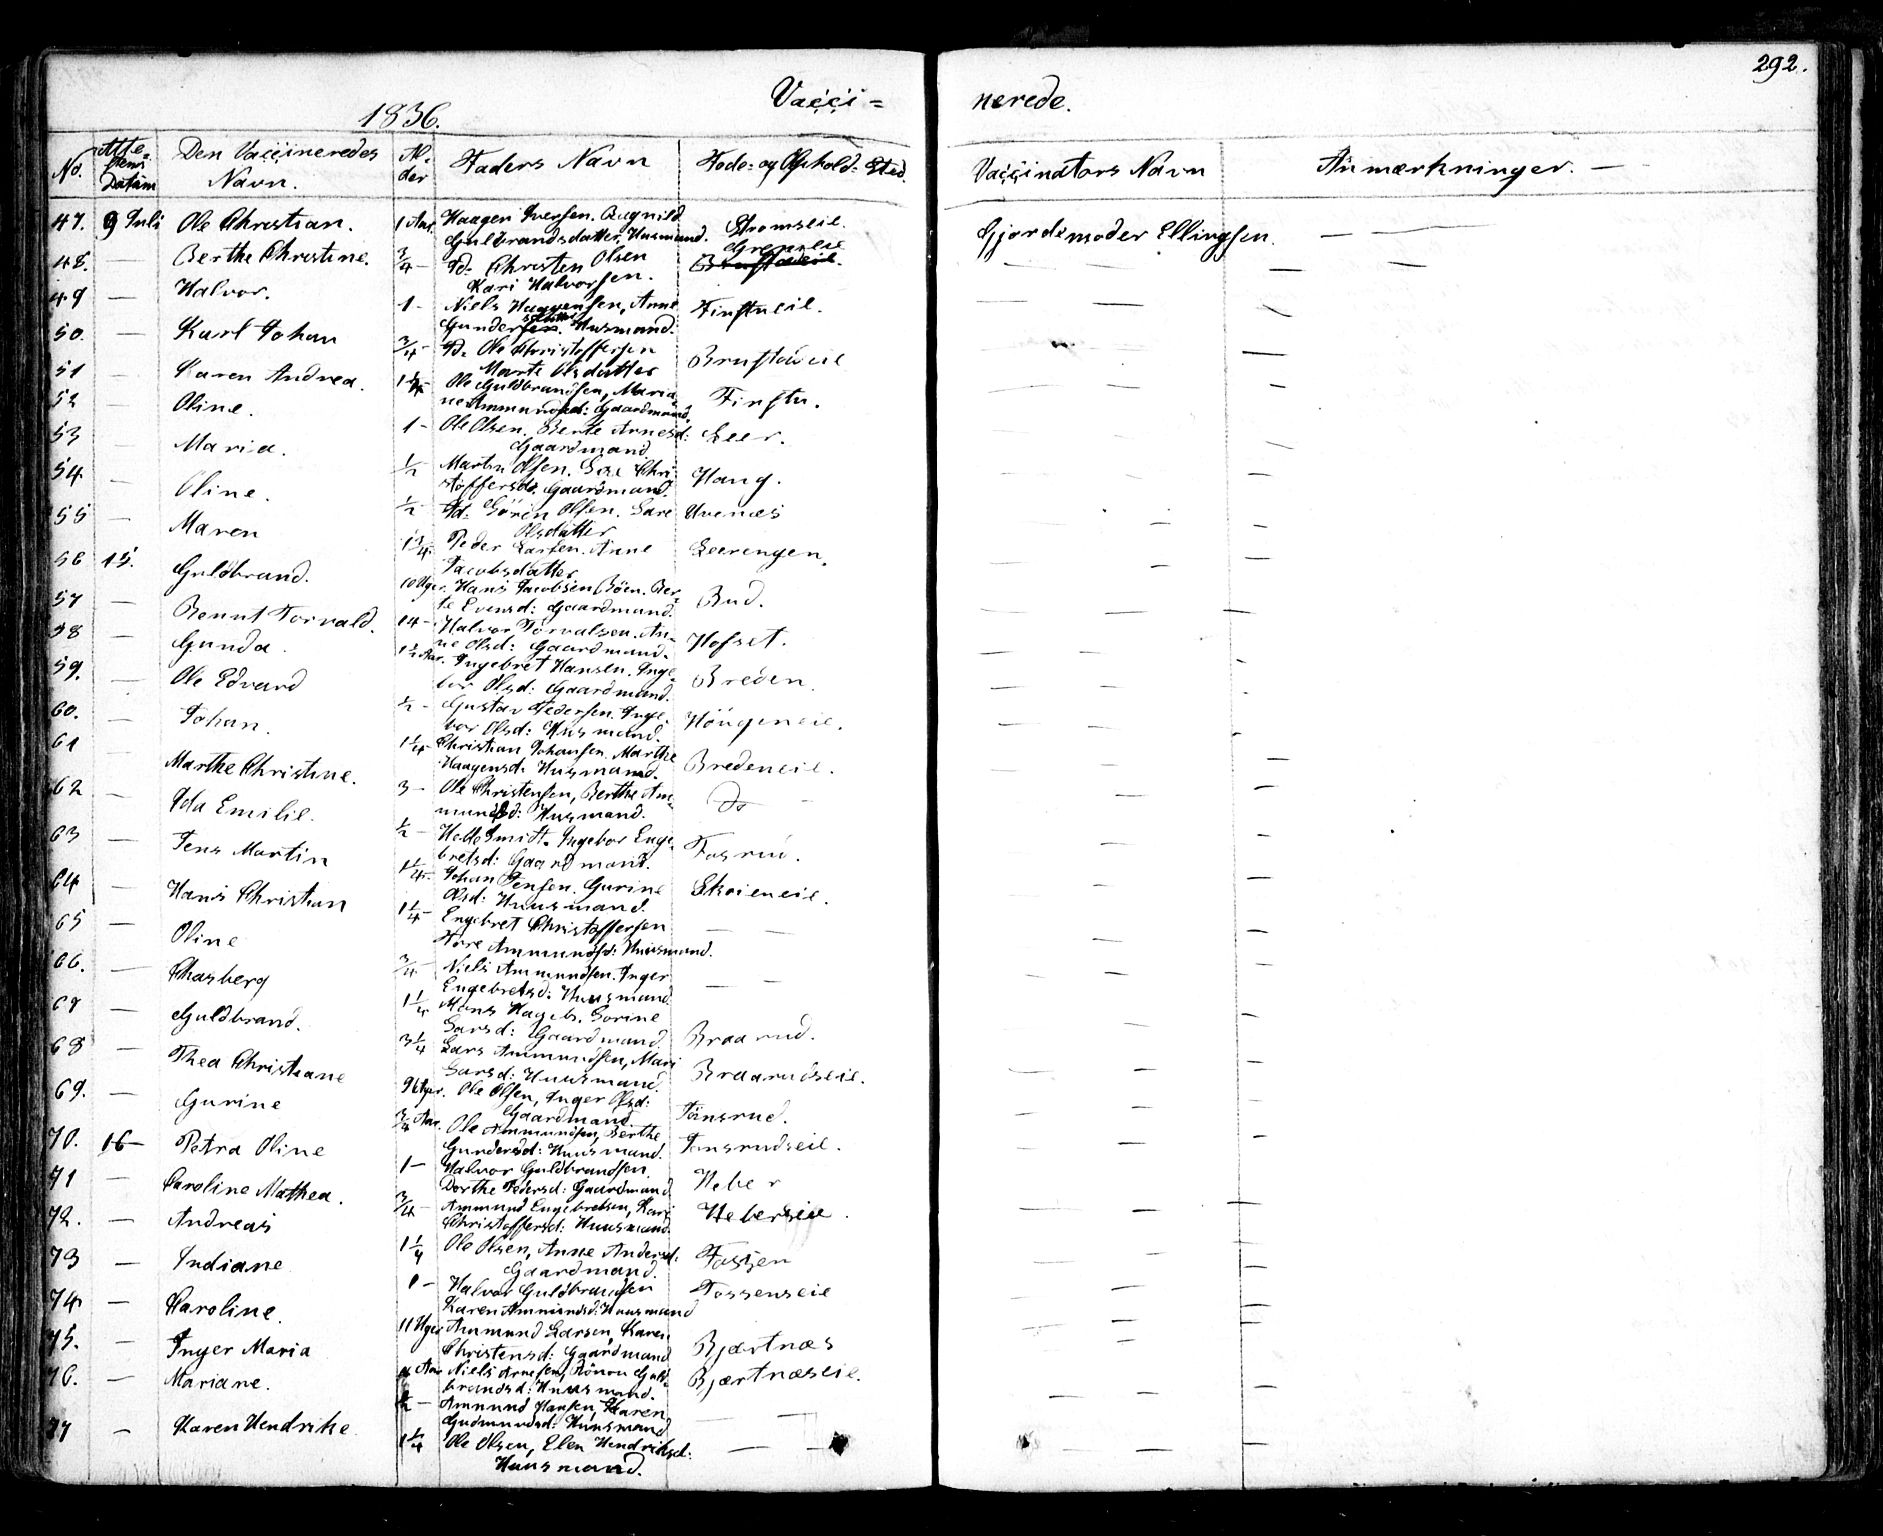 292.
Vacci=
nerede.
1836.
No. Atte-stens Datum Den Vaccineredes Navn. Al-der Faders Navn Føde- og Ophold-Sted. Vaccinators Navn Anmærkninger. —
47. 9 Juli Ole Christian. 1 Aar. Haagen Iversen. Ragnild Strømseie. Gjordemoder Ellingsen. — —
Gulbrandsdatter, Husmand.
48. — Berthe Christine. 3/4 — Do. Christen Olsen Grenseie
Kari Halvorsen.
49 — Halvor. 1 — Niels Haagensen, Anne Finstueie.
Gunders datter. Husmand.
50. — Karl Johan 3/4 — Do. Ole Christoffersen Brustadeie
Marte Olsdatter
51 — Karen Andrea. 1 1/4 — Ole Guldbrandsen, Maria- Finstu.
ne Ammundsd: Gaardmand.
52 — Oline. 1 — Ole Olsen. Berte Arnesd: Leer.
Gaardmand
53 — Maria. 1/2 — Marten Olsen. Chri- Haug.
stoffersd. Gaardmand.
54. — Oline. 1/2 — Do. Sören Olsen. Sare Uvenæs
Olsdatter
55 — Maren 1 3/4 — Peder Larsen. Anne Leerengen.
Jacobsdatter
56 15. Guldbrand. 10 Uger. Hans Jacobsen Böen. Ber- Bud.
te Evensd: Gaardmand.
57 — Bennt Torvald. 14 — Halvor Torvalsen. An- Hofset.
ne Olsd: Gaardmand.
58 — Gunda. 1 1/2 Aar. Ingebret Hansen. Inge- Breden.
bor Olsd: Gaardmand.
59. — Ole Edvard 1/2 — Gustav Pedersen. Inge- Höugeneie.
bor Olsd: Husmand.
60. — Johan. 1 1/4 — Christian Johansen. Marthe Bredeneie.
Haagensd. Husmand.
61 — Marthe Christine. 3 — Ole Christensen, Berthe Am- Do —
mundsd: Husmand.
62 — Ida Emilie. 1/2 — Helle Smit. Ingebor Enge- Fosrud.
bretsd: Gaardmand.
63 — Jens Martin 1 1/4 — Johan Jensen. Gurine Skoieneie.
Olsd: Huusmand.
64 — Hans Christian 1 1/4 — Engebret Christoffersen — —
Tore Ammundsd: Huusmand.
65 — Oline 3/4 — Niels Ammundsen. Inger — —
Engebretsd: Huusmand.
66. — Chasberg 1 1/4 Mons Hageb. Sorine Braarud.
Larsd: Gaardmand.
67 — Guldbrand. 3 1/4 Lars Ammundsen, Mari Braarudseie.
Larsd: Huusmand.
68 — Thea Christiane 9 Uger. Ole Olsen, Inger Olsd: Tönsrud.
Gaardmand.
69. — Gurine 3/4 Aar. Ole Ammundsen, Berthe Tonsrudseie.
Gundersd: Huusmand.
70. 16 — Petra Oline 1 — Halvor Guldbrandsen Heber
Dorthe Pedersd: Gaardmand
71 — Caroline Mathea. 3/4 — Ammund Engebretsen, Kari Heberseie.
Christoffersd: Huusmand.
72. — Andreas 1 1/4 Ole Olsen, Anne Andersd: Fossen
Gaardmand.
73 — Indiane 1 — Halvor Guldbrandsen Fossenseie
Karen Ammundsd: Huusmand
74 — Caroline. 11 Uger Ammund Larsen, Karen Bjærtnæs
Christensd: Gaardmand
75. — Inger Maria Aar Niels Arnesen, Rönou Guld- Bjærtnæseie.
brandsd: Huusmand.
76. — Mariane. 1/2 — Ammund Hansen, Karen — —
Gudmundsd: Huusmand
77 — Karen Hendrike 1 1/4 Ole Olsen, Elen Hendriksd: — —
Huusmand.